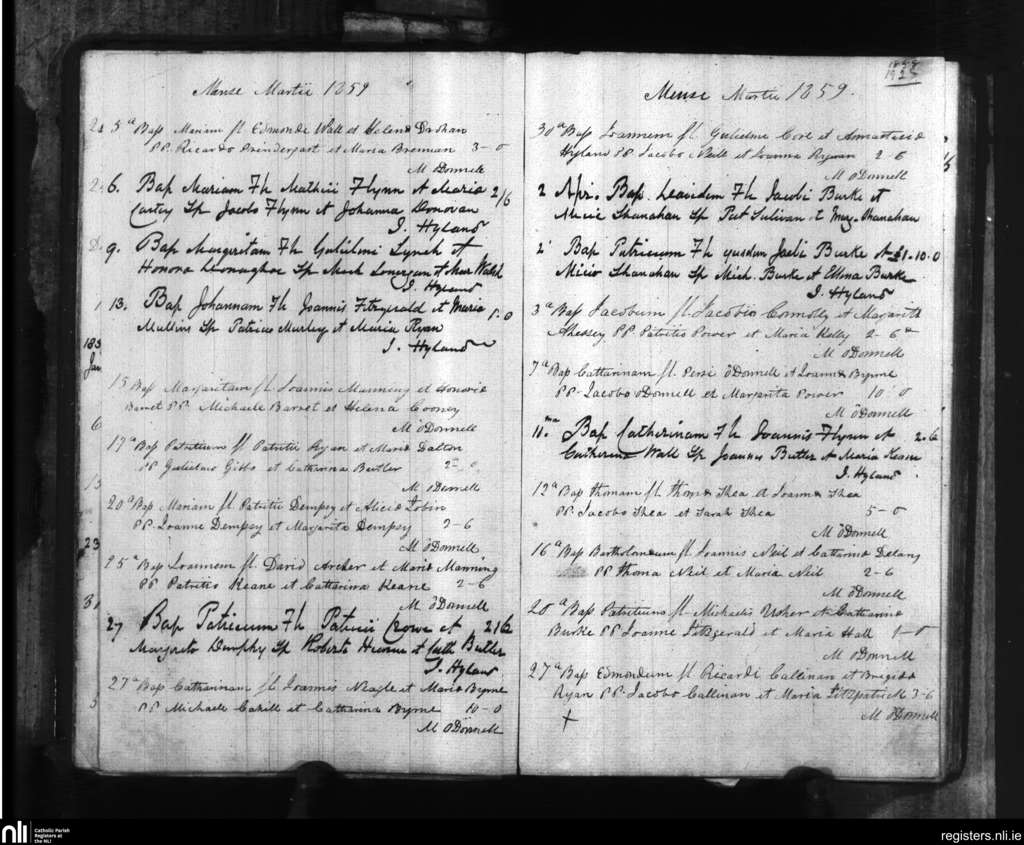 Mense Martii 1859
5a Bap Mariam fl. Edmondi Wall et Helena Drohan
P.P. Ricardo Prinderfast et Maria Brennan 3-0
M O'Donnell
6. Bap Mariam Fh Mathii Flynn et Maria 2/6
Sp Jacobo Flynn et Johanna Donovan
J. Hyland
9. Bap Margeritam Fh Gulielmi Lynch et
Honora Sp Mich Lonergan et Walsh
J. Hyland
13. Bap Johannam Fh Joannis Fitzgerald et Maria 1-0
Mullins Sp Patricio Murley et Maria Ryan
J. Hyland
185
Jan
15 Bap Margaritam fl. Joannis Manning et Honoria
Barret P.P. Michaele Barrot et Helena Cooney
6
M O'Donnell
17a Bap Patritium fl Patritii Ryan et Maria Dalton
PP Gulielmo Gibbs et Catharina Butler 2-0
13
M O'Donnell
20a Bap Mariam fl. Patritii Dempsy et Alicia Tobin
P.P. Joanne Dempsy et Margarita Dempsy 2-6
23
M O'Donnell
25a Bap Joannem fl. David Archer et Maria Manning
PP Patritio Keane et Catharina Keane 2-6
31
M O'Donnell
27 Bap Patricium Fh Patricii Crowe et 2/6
Margreto Dunphy Sp Roberto et Cath Butler
J. Hyland
27a Bap Catharinam fl. Joannis Neagle et Maria Byrne
P.P Michaele Cahill et Catharina Byrne 10-0
M O'Donnell
Mense Martii 1859.
30a Bap Joannem fl. Gulielmi Core et Anastasia
Hyland P.P. Jacobo Neill et Joanna Ryan 2-6
M O'Donnell
2 Apri. Bap. Davidem Fh Jacobi Burke et
Alicie Shanahan Sp Pat Sulivan et Mary Shanahan
2 Bap Patricium Fh Jacobi Burke et £1-10-0
Alicie Shanahan Sp Mich. Burke et Ellena Burke
J. Hyland
3a Bap Jacobum fl. Jacobi Connolly et Margarita
Ahessy P.P. Patritio Power et Maria Kelly 2-6
M O'Donnell
7a Bap Cattarinam fl. Persi O'Donnell et Joanna Byrne
P.P. Jacobo O'Donnell et Margarita Power 10-0
M O'Donnell
11.ma Bap Catherinam Fh Joannis Flynn et 2-6
Catherina Wall Sp Joannes Butler et Maria Keane
J. Hyland
12a Bap Thomam fl. Thoma Shea et Joanna Shea
P.P. Jacobo Shea et Sarah Shea 5-0
M O'Donnell
16a Bap Bartholomeum fl. Joannis Neil et Catharina Delany
P.P Thoma Neil et Maria Neil 2-6
M O'Donnell
20a Bap Patritium fl. Michaelis Usher et Catharina
Burke P.P. Joanne Fitzgerald et Maria Hall 1-0
M O'Donnell
27a Bap Edmondum fl Ricardi Callinan et Brigida
Ryan P.P. Jacobo Callinan et Maria Fitzpatrick 3-6
M O'Donnell
nli
Catholic Parish
Registers at
the NLI
registers.nli.ie